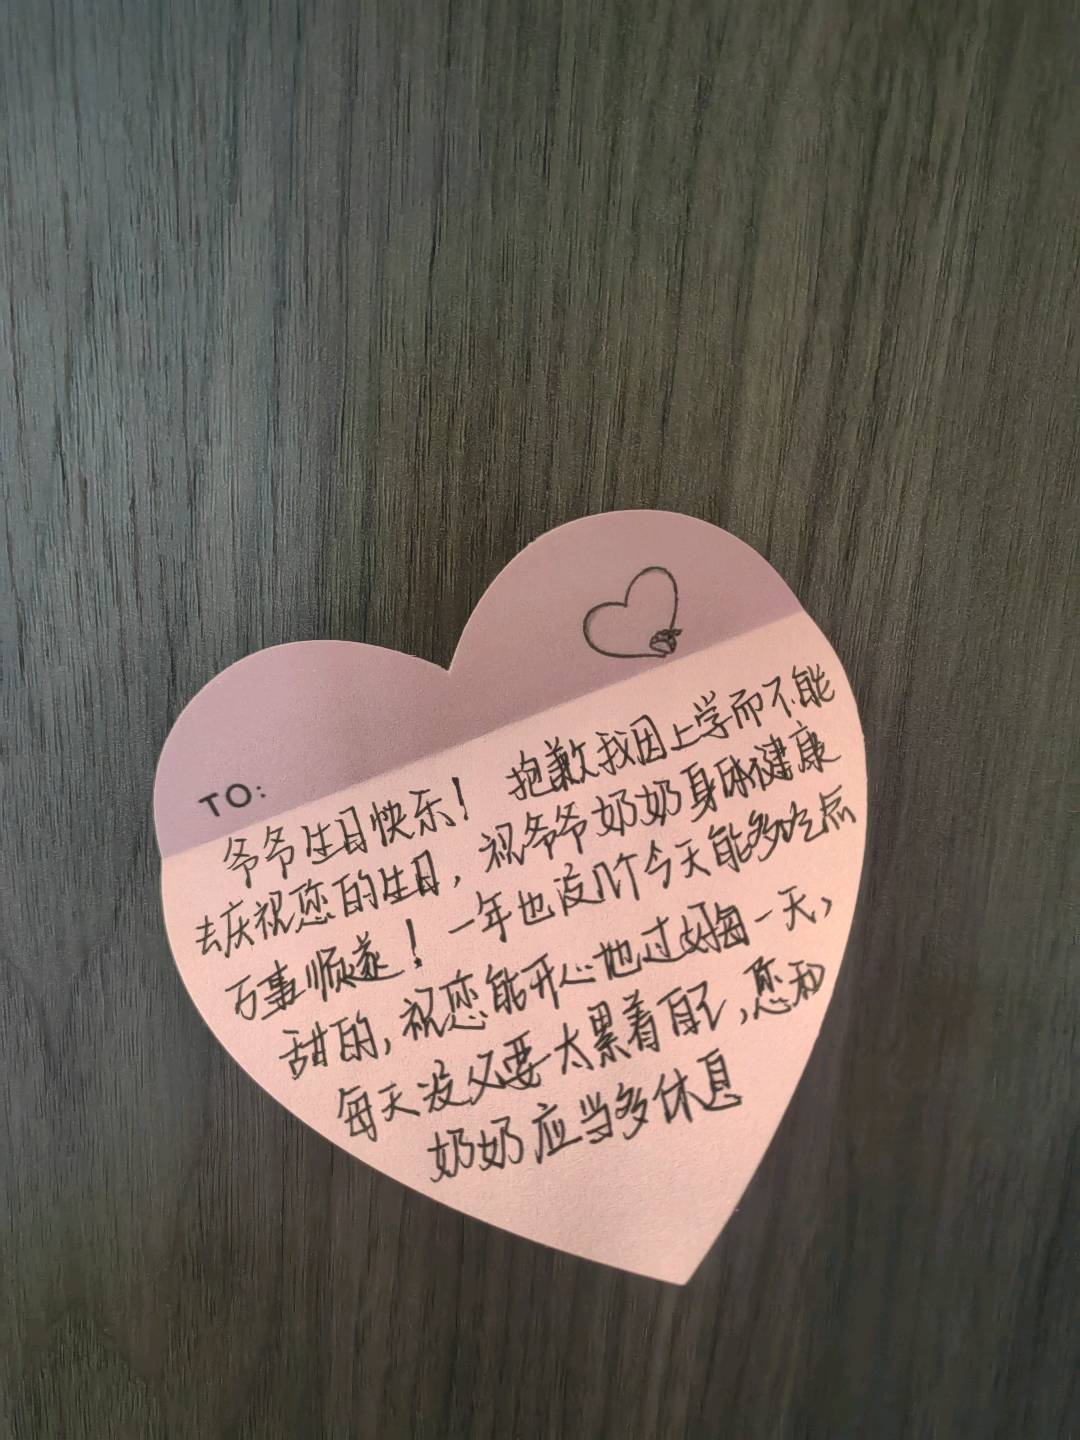 TO:
爷爷生日快乐！ 抱歉我因上学而不能
去庆祝您的生日，祝爷爷奶奶身体健康
万事顺遂！一年也没几个今天能多吃点
甜的，祝您能开心地过好每一天，
每天没必要太累着自己，您和
奶奶应当多休息